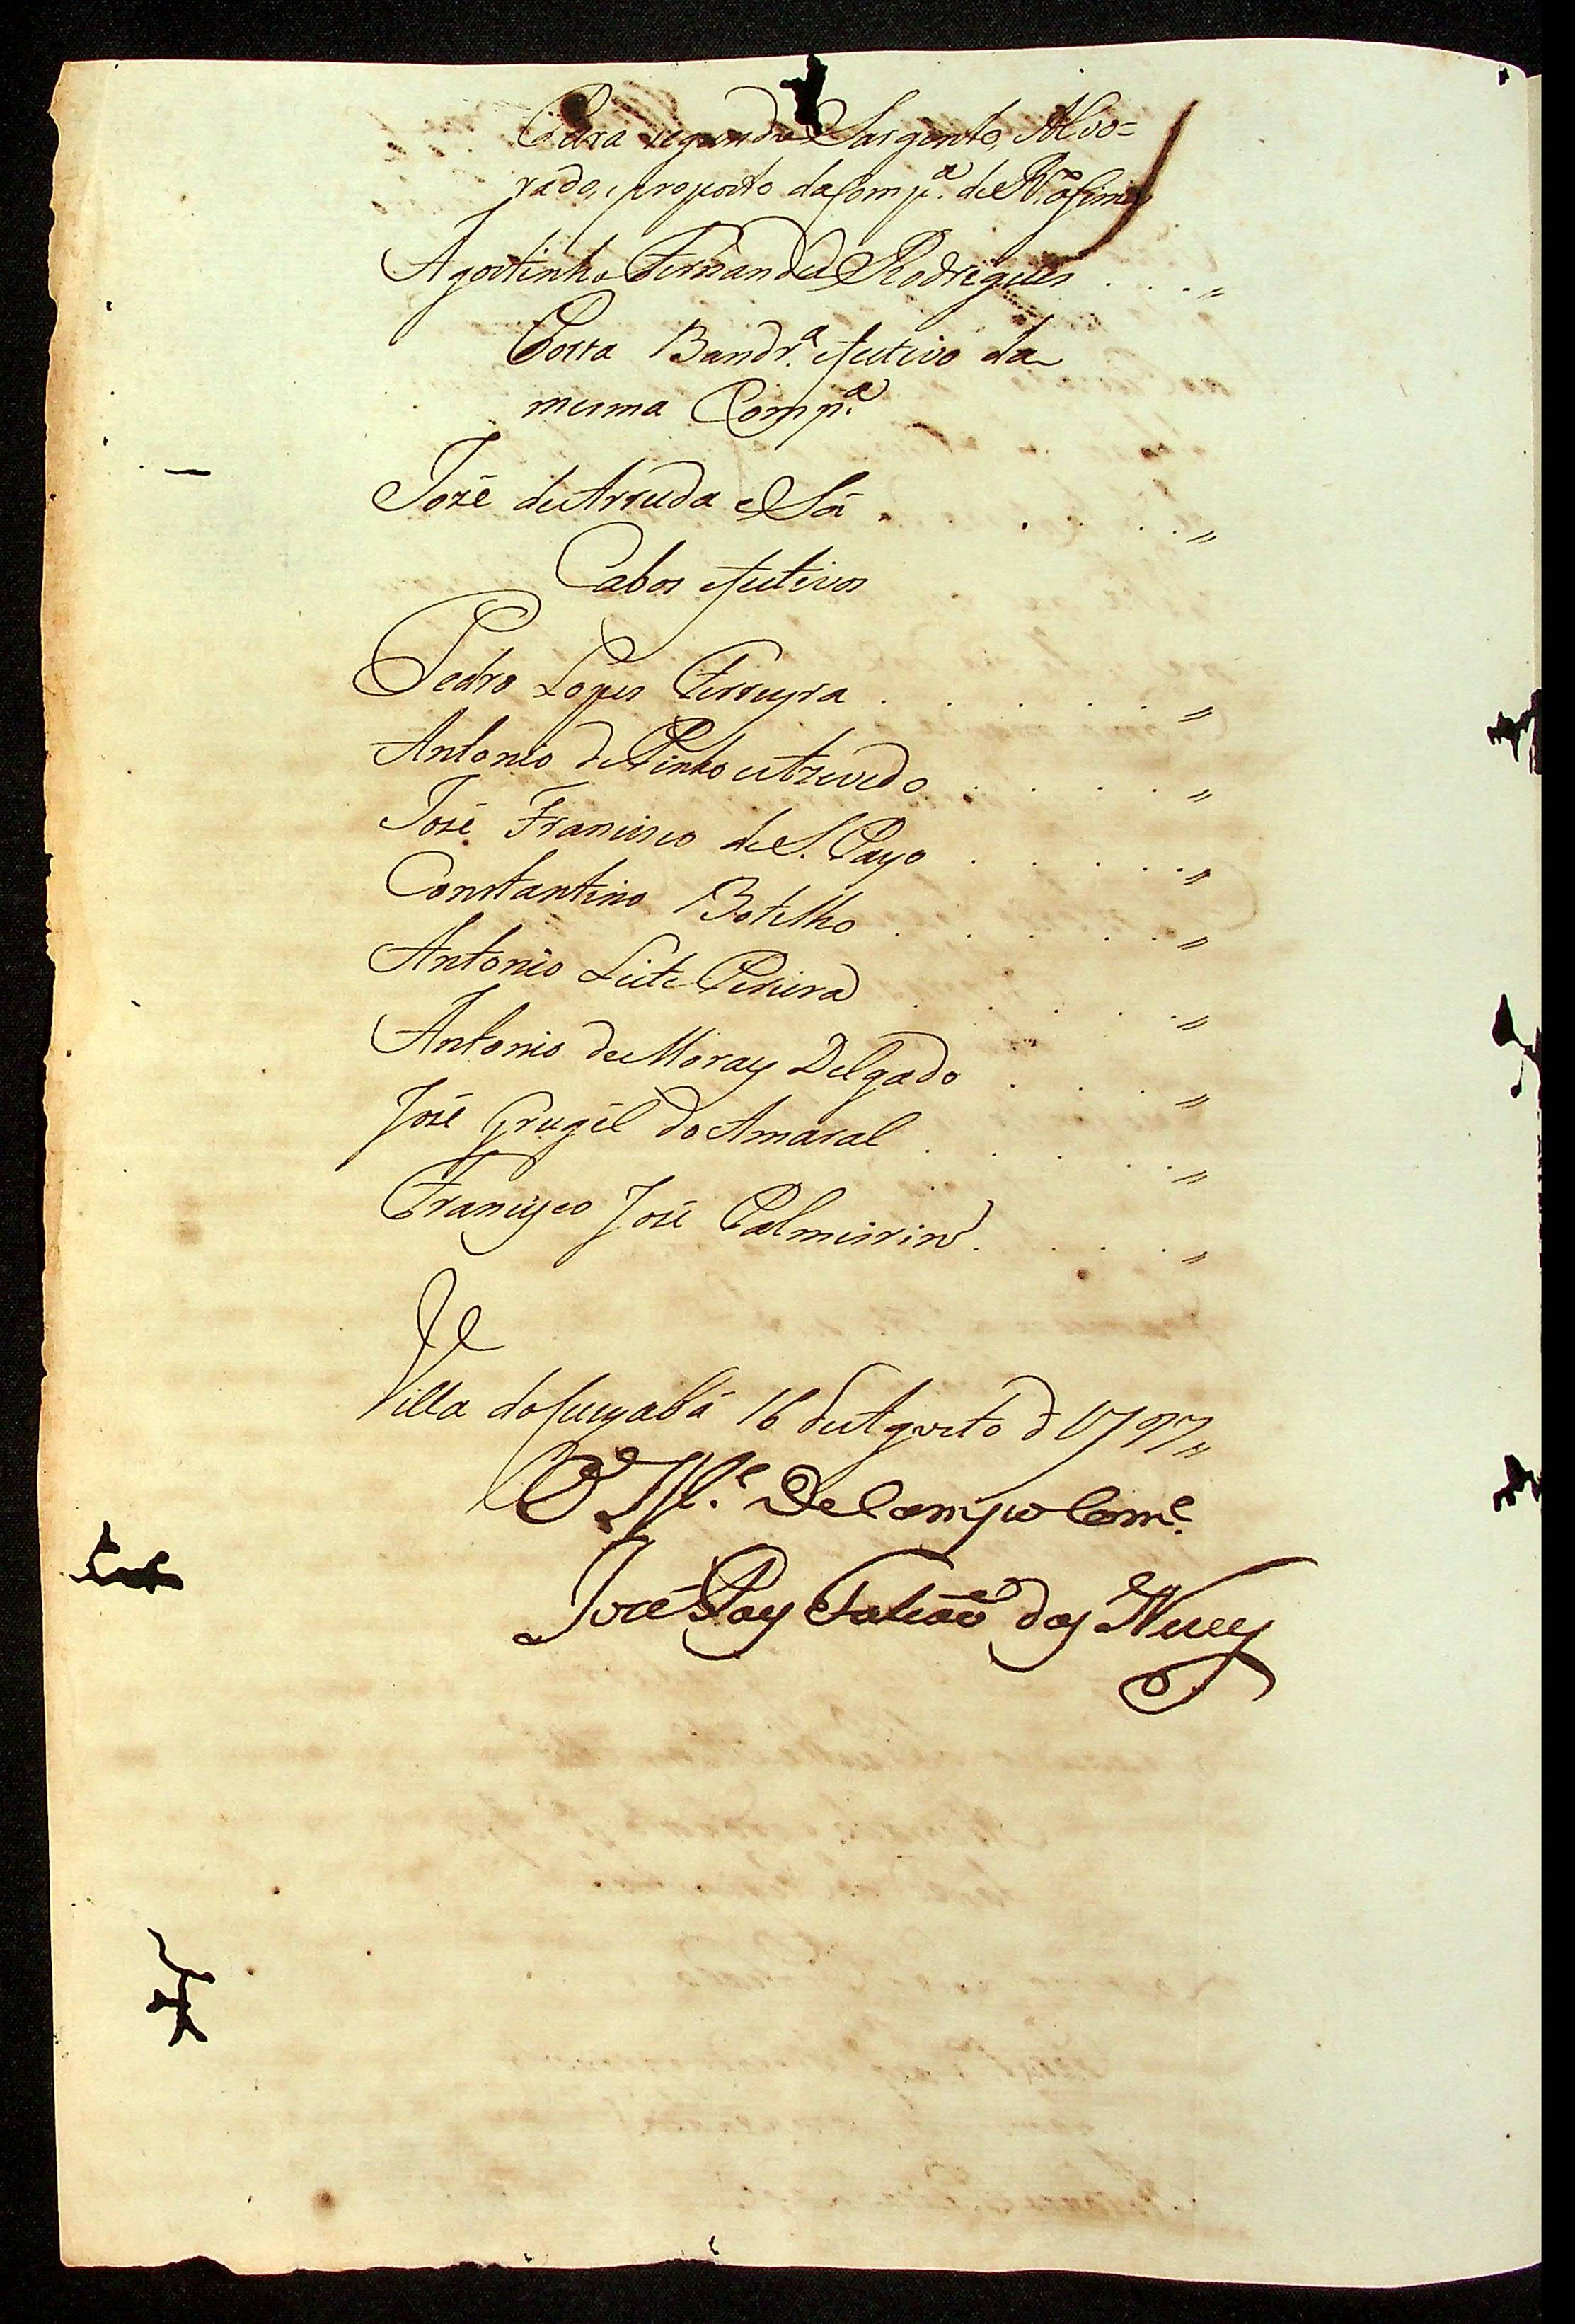 Para segundo Sargento, Alvo=
rado, e proposto da Comp.ª de
Agostinho Fernandes Rodrigues . . . . "
Porta Bandr.ª efectivo da
mesma Comp.ª
José de Arruda e Sá . . . . . "
Cabos efectivos
Pedro Lopes Ferreyra . . . . . "
Antonio de Pinho e Azevedo . . . . "
José Francisco de S. Payo . . . . . "
Constantino Botelho . . . . . "
Antonio Leite Pereira . . . . . "
Antonio de Moraes Delgado . . . . "
José Grugél do Amaral . . . . . "
Francisco José Palmeirim . . . . "
Villa do Cuyabá 16 de Agosto d 1797 "
O M.e De Campo Com.e
José Paes Falcaõ das Neves